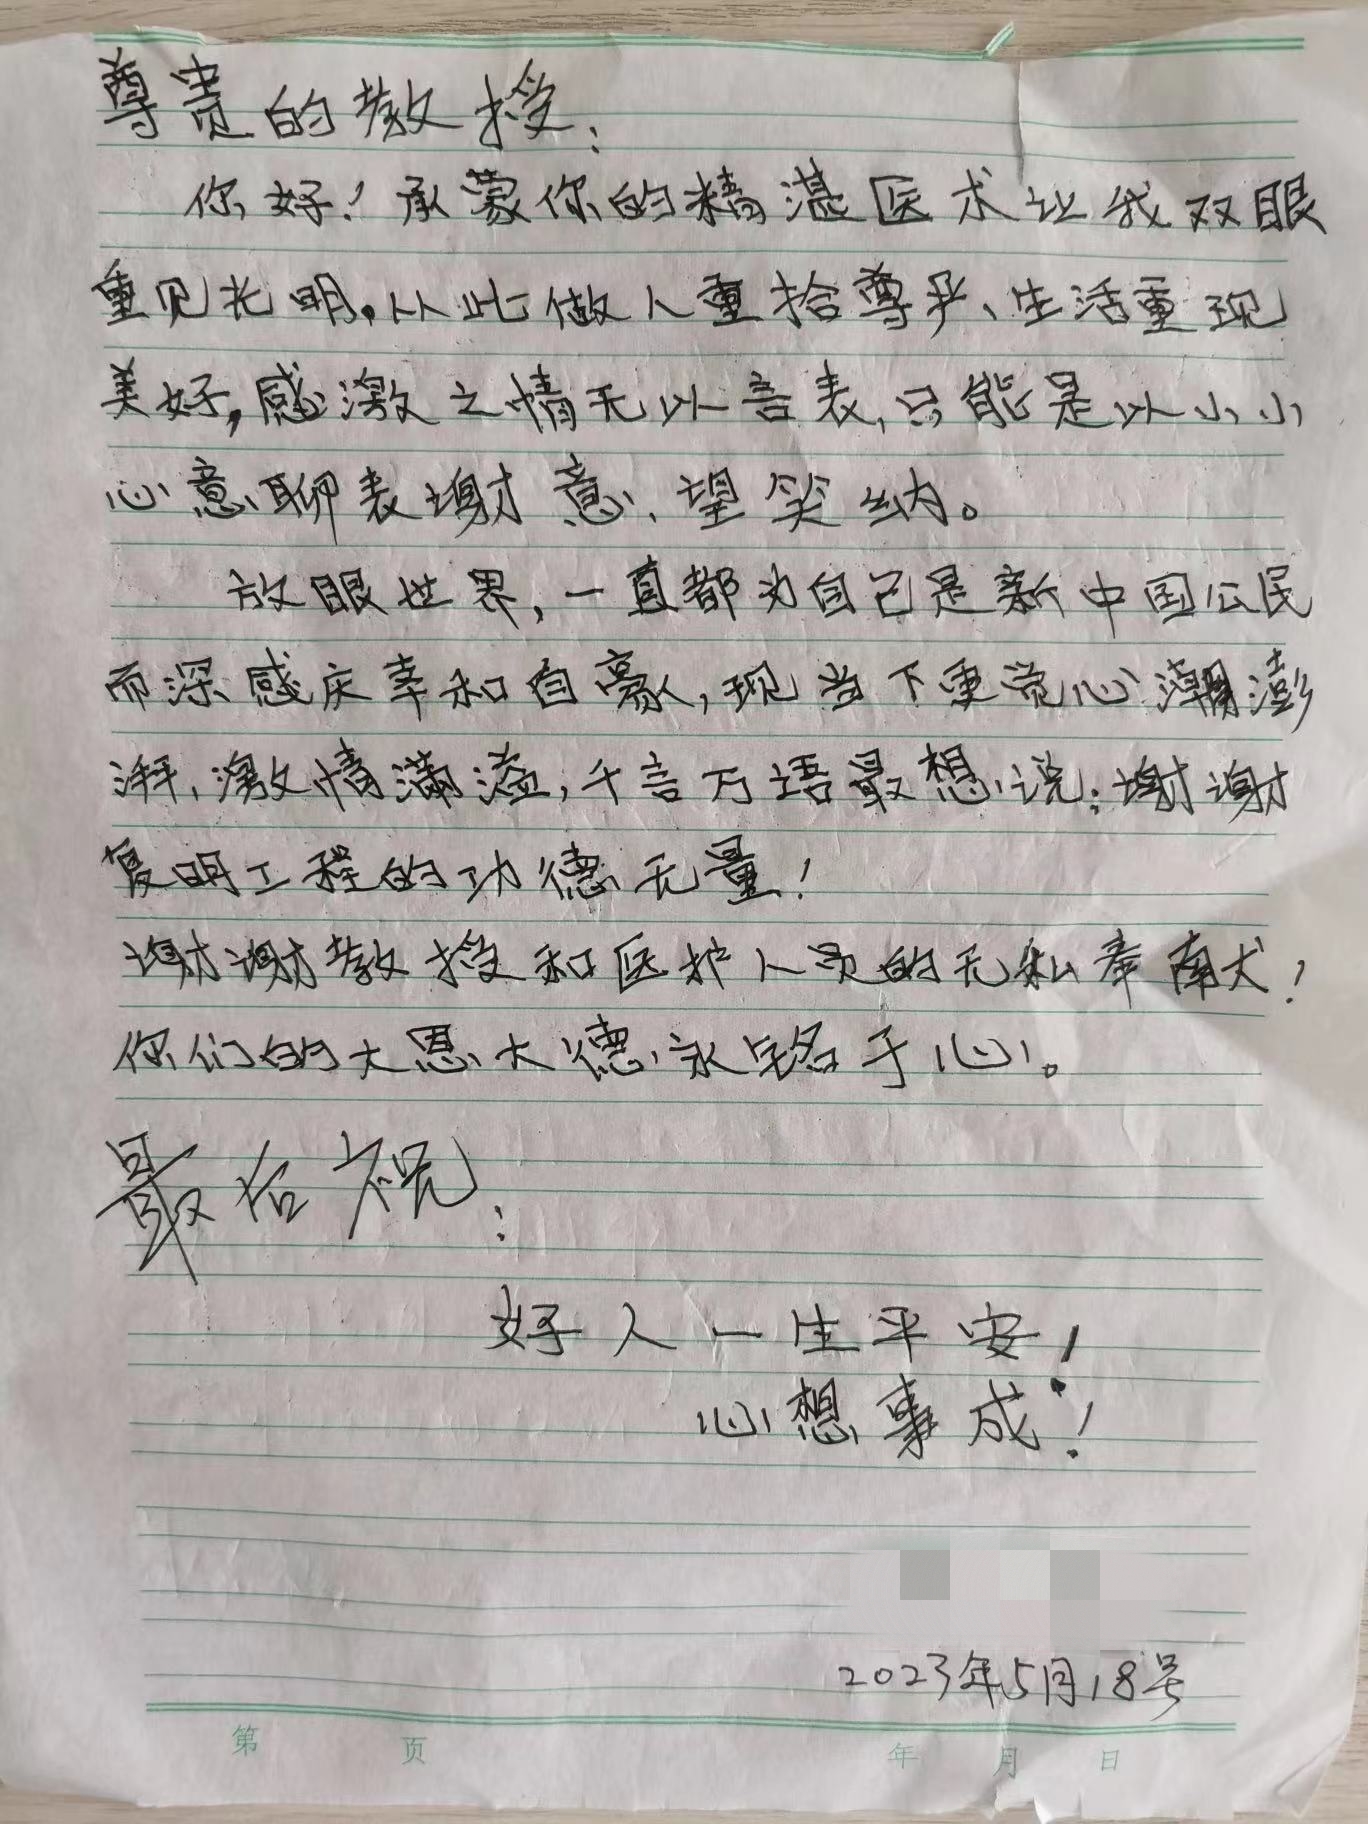 尊贵的教授：
你好！承蒙你的精湛医术让我双眼
重见光明。从此做人重拾尊严、生活重现
美好，感激之情无以言表，只能是以小小
心意聊表谢意、望笑纳。
放眼世界，一直都为自己是新中国公民
而深感庆幸和自豪，现当下更觉心潮澎
湃、激情满溢，千言万语最想说：谢谢
复明工程的功德无量！
谢谢教授和医护人员的无私奉献！
你们的大恩大德永铭于心。
最后祝：
好人一生平安！
心想事成！
2023年5月18号
第 页 年 月 日